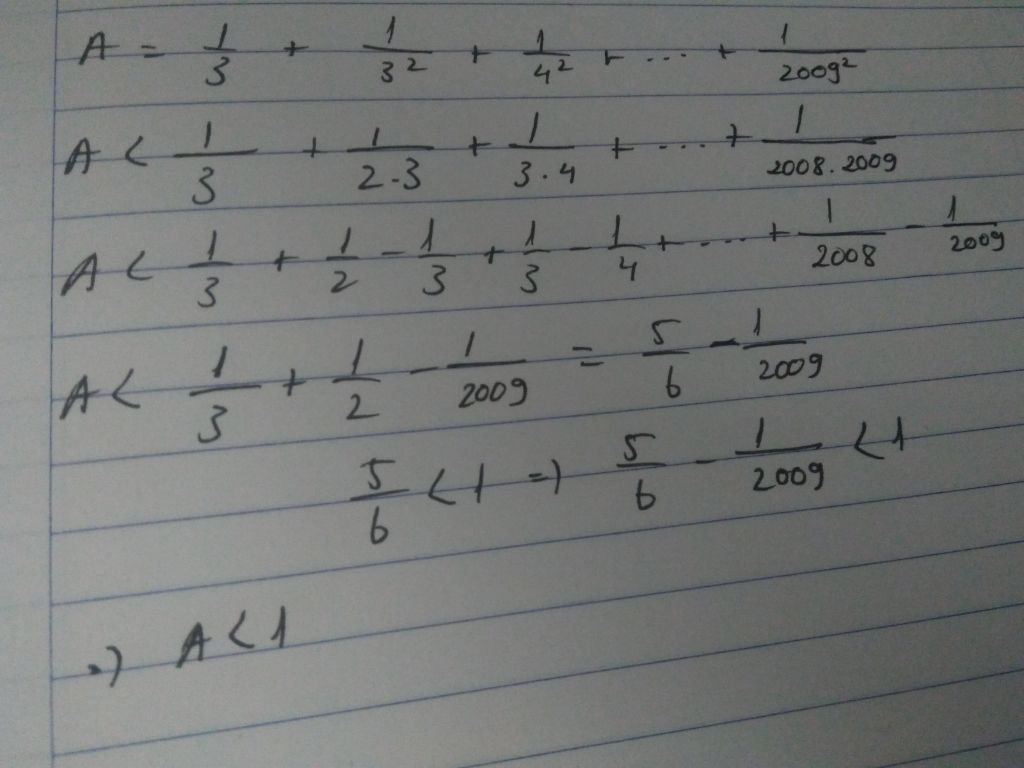 A = 1/3 + 1/3² + 1/4² + ... + 1/2009²
A < 1/3 + 1/2.3 + 1/3.4 + ... + 1/2008.2009
A < 1/3 + 1/2 - 1/3 + 1/3 - 1/4 + ... + 1/2008 - 1/2009
A < 1/3 + 1/2 - 1/2009 = 5/6 - 1/2009
5/6 < 1 => 5/6 - 1/2009 < 1
=> A < 1